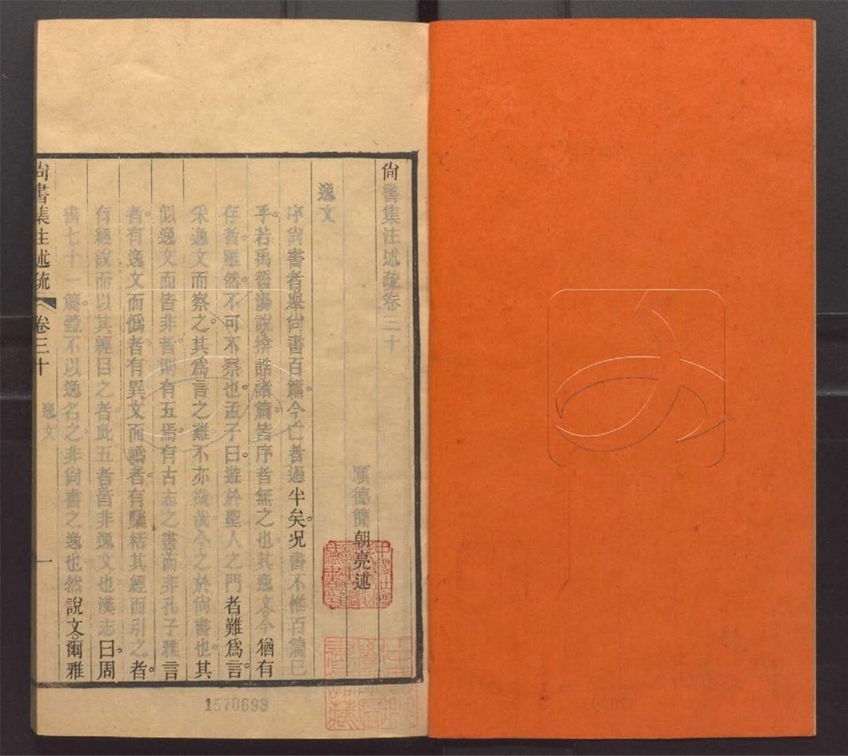 尚書集注述疏卷三十
順德簡朝亮述
逸文
序尚書者舉尚書百篇今亡者過半矣況書不惟百篇已
乎若禹誓湯說揜誥諸篇皆序者無之也其逸文今猶有
存者雖然不可不察也孟子曰遊於聖人之門者難爲言
采逸文而察之其爲言之難不亦欲哉今之於尚書也其
似逸文而皆非者則有五焉有古志之書而非孔子雅言
者有逸文而僞者有異文而譌者有檃栝其經而引之者
有經說而以其經目之者此五者皆非逸文也漢志曰周
書七十一篇蓋不以逸名之非尚書之逸也然說文爾雅
尚書集注述疏 卷三十 逸文 一
1570693